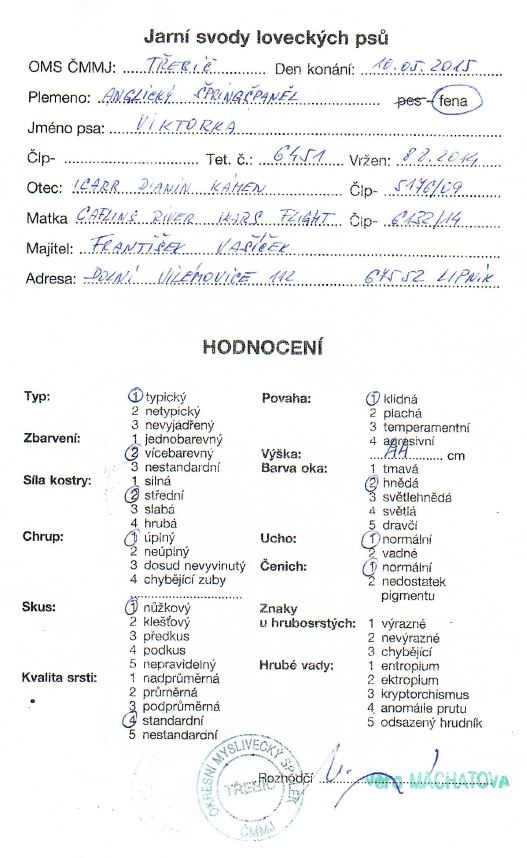 Jarní svody loveckých psů
OMS ČMMJ: TŘEBÍČ Den konání: 10.05.2015
Plemeno: ANGLICKÝ ŠPRINGŠPANĚL pes - fena
Jméno psa: VIKTORKA
Člp- Tet. č.: 6451 Vržen: 8.2.2014
Otec: ICARR DIANIN KÁMEN Člp- 5176/09
Matka RIVER FLIGHT Člp- 6132/14
Majitel: FRANTIŠEK VAŠÍČEK
Adresa: DOLNÍ VILÉMOVICE 112 67552 LIPNÍK
HODNOCENÍ
Typ: 1 typický
2 netypický
3 nevyjádřený
Zbarvení: 1 jednobarevný
2 vícebarevný
3 nestandardní
Síla kostry: 1 silná
2 střední
3 slabá
4 hrubá
Chrup: 1 úplný
2 neúplný
3 dosud nevyvinutý
4 chybějící zuby
Skus: 1 nůžkový
2 klešťový
3 předkus
4 podkus
5 nepravidelný
Kvalita srsti: 1 nadprůměrná
2 průměrná
3 podprůměrná
4 standardní
5 nestandardní
Povaha: 1 klidná
2 plachá
3 temperamentní
4 agresivní
Výška: cm
Barva oka: 1 tmavá
2 hnědá
3 světlehnědá
4 světlá
5 dravčí
Ucho: 1 normální
2 vadné
Čenich: 1 normální
2 nedostatek
pigmentu
Znaky
u hrubosrstých: 1 výrazné
2 nevýrazné
3 chybějící
Hrubé vady: 1 entropium
2 ektropium
3 kryptorchismus
4 anomálie prutu
5 odsazený hrudník
Rozhodčí Věra MACHATOVÁ
OKRESNÍ MYSLIVECKÝ SPOLEK
TŘEBÍČ
ČMMJ